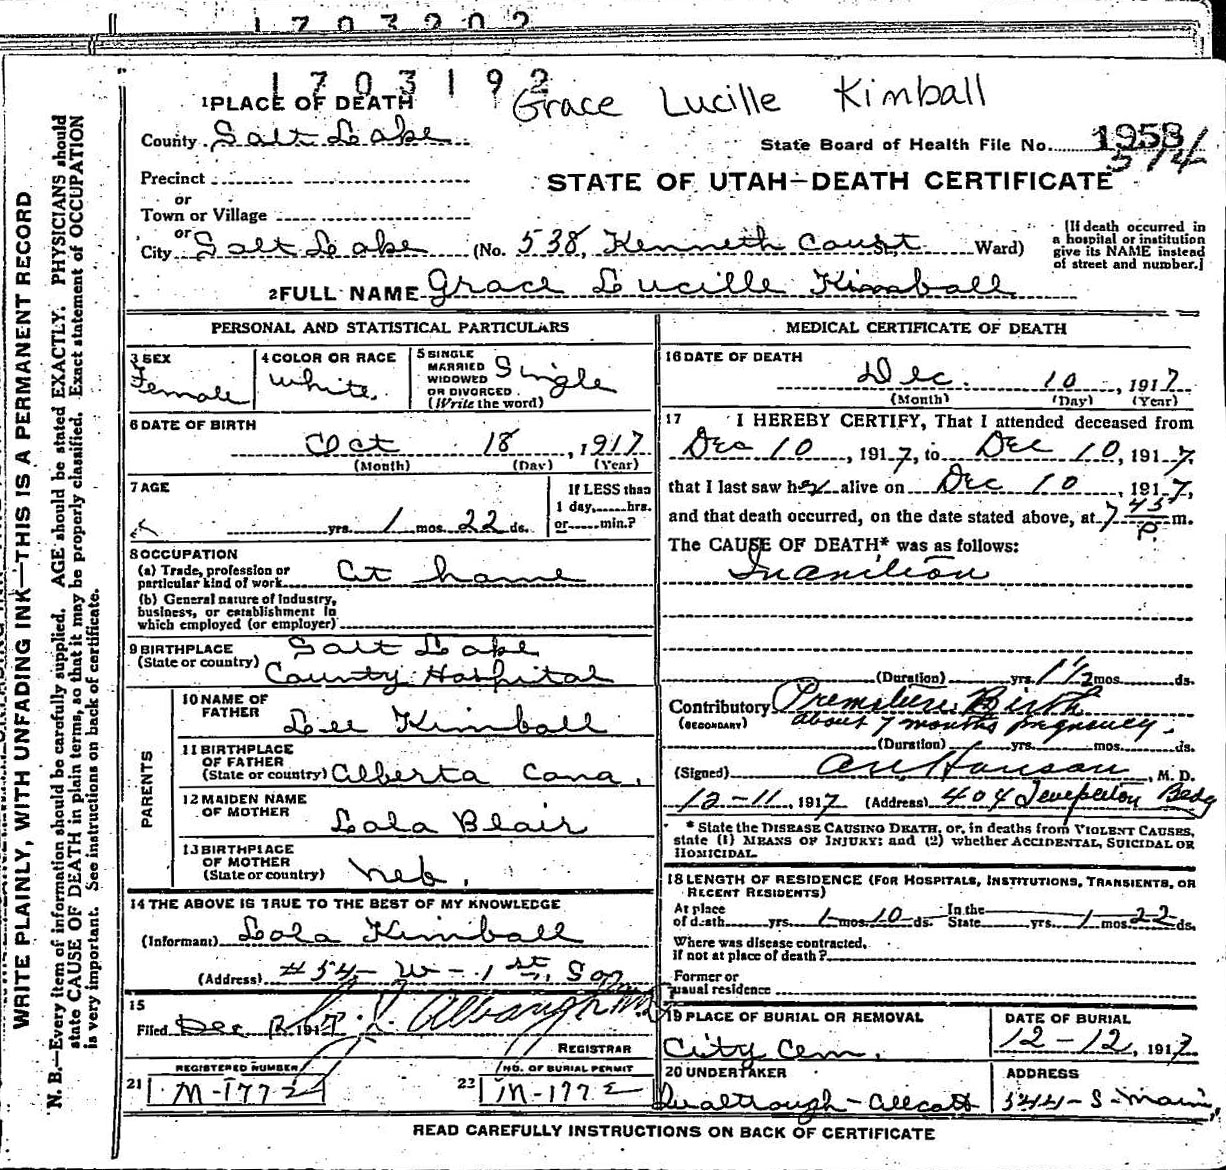 1703202
1703192
Grace Lucille Kimball
1 PLACE OF DEATH
County Salt Lake
State Board of Health File No. 1953
514
Precinct
or
STATE OF UTAH—DEATH CERTIFICATE
Town or Village
or
City Salt Lake (No. 538, Kenneth Court St., Ward)
[If death occurred in a hospital or institution give its NAME instead of street and number.]
2 FULL NAME Grace Lucille Kimball
PERSONAL AND STATISTICAL PARTICULARS
3 SEX
Female
4 COLOR OR RACE
White
5 SINGLE
MARRIED
WIDOWED
OR DIVORCED
(Write the word)
Single
6 DATE OF BIRTH
Oct 18, 1917
(Month) (Day) (Year)
7 AGE
yrs. 1 mos. 22 ds.
If LESS than
1 day, hrs.
or min.?
8 OCCUPATION
(a) Trade, profession or
particular kind of work At home
(b) General nature of industry,
business, or establishment in
which employed (or employer)
9 BIRTHPLACE
(State or country)
Salt Lake
County Hospital
PARENTS
10 NAME OF
FATHER
Lee Kimball
11 BIRTHPLACE
OF FATHER
(State or country) Alberta Cana.
12 MAIDEN NAME
OF MOTHER
Lola Blair
13 BIRTHPLACE
OF MOTHER
(State or country)
Neb.
14 THE ABOVE IS TRUE TO THE BEST OF MY KNOWLEDGE
(Informant) Lola Kimball
(Address) #54- W-1st So
15
Filed Dec 1917
REGISTRAR
REGISTERED NUMBER
21 M-1772
NO. OF BURIAL PERMIT
22 M-1772
MEDICAL CERTIFICATE OF DEATH
16 DATE OF DEATH
Dec. 10, 1917
(Month) (Day) (Year)
17 I HEREBY CERTIFY, That I attended deceased from
Dec 10, 1917, to Dec 10, 1917,
that I last saw her alive on Dec 10, 1917,
and that death occurred, on the date stated above, at 7 45 P m.
The CAUSE OF DEATH* was as follows:
Inanition
(Duration) yrs. 1 1/2 mos. ds.
Contributory Premature Birth
(SECONDARY) about 7 months pregnancy.
(Duration) yrs. mos. ds.
(Signed) Hanson, M. D.
12-11, 1917 (Address) 404 Templeton Bldg
* State the DISEASE CAUSING DEATH, or, in deaths from VIOLENT CAUSES,
state (1) MEANS OF INJURY; and (2) whether ACCIDENTAL, SUICIDAL OR
HOMICIDAL.
18 LENGTH OF RESIDENCE (FOR HOSPITALS, INSTITUTIONS, TRANSIENTS, OR
RECENT RESIDENTS)
At place
of death yrs. 1 mos. 10 ds. In the State yrs. 1 mos. 22 ds.
Where was disease contracted,
If not at place of death?
Former or
usual residence
19 PLACE OF BURIAL OR REMOVAL
City Cem.
DATE OF BURIAL
12-12, 1917
20 UNDERTAKER
ADDRESS
544-S-Main,
READ CAREFULLY INSTRUCTIONS ON BACK OF CERTIFICATE
WRITE PLAINLY, WITH UNFADING INK—THIS IS A PERMANENT RECORD
N. B.—Every item of information should be carefully supplied. AGE should be stated EXACTLY. PHYSICIANS should
state CAUSE OF DEATH in plain terms, so that it may be properly classified. Exact statement of OCCUPATION
is very important. See instructions on back of certificate.